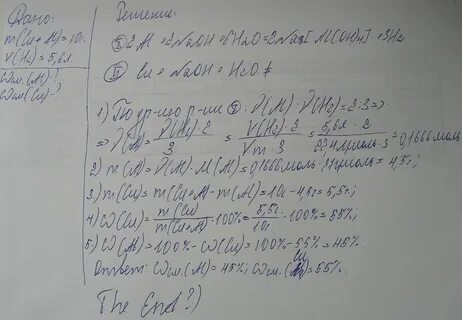 Дано:
m(Cu + Al) = 10г.
V(H₂) = 5,6л.
ωсм.(Al)-?
ωсм(Cu)-?
Решение:
I 2Al + 2NaOH + 6H₂O = 2Na[Al(OH)₄] + 3H₂
II Cu + NaOH + H₂O ≠
1) По ур-ию р-ии I: ν(Al) : ν(H₂) = 2:3 =>
=> ν(Al) = ν(H₂)·2 / 3 = V(H₂)·2 / Vm·3 = 5,6л·2 / 22,4л/моль·3 = 0,1666моль
2) m(Al) = ν(Al)·M(Al) = 0,1666моль·27г/моль = 4,5г;
3) m(Cu) = m(Cu+Al) - m(Al) = 10г - 4,5г = 5,5г;
4) ω(Cu) = m(Cu) / m(Cu+Al) ·100% = 5,5г. / 10г. ·100% = 55%
5) ω(Al) = 100% - ω(Cu) = 100% - 55% = 45%.
Ответ: ωсм.(Al) = 45%; ωсм.(Cu) = 55%.
The End?)